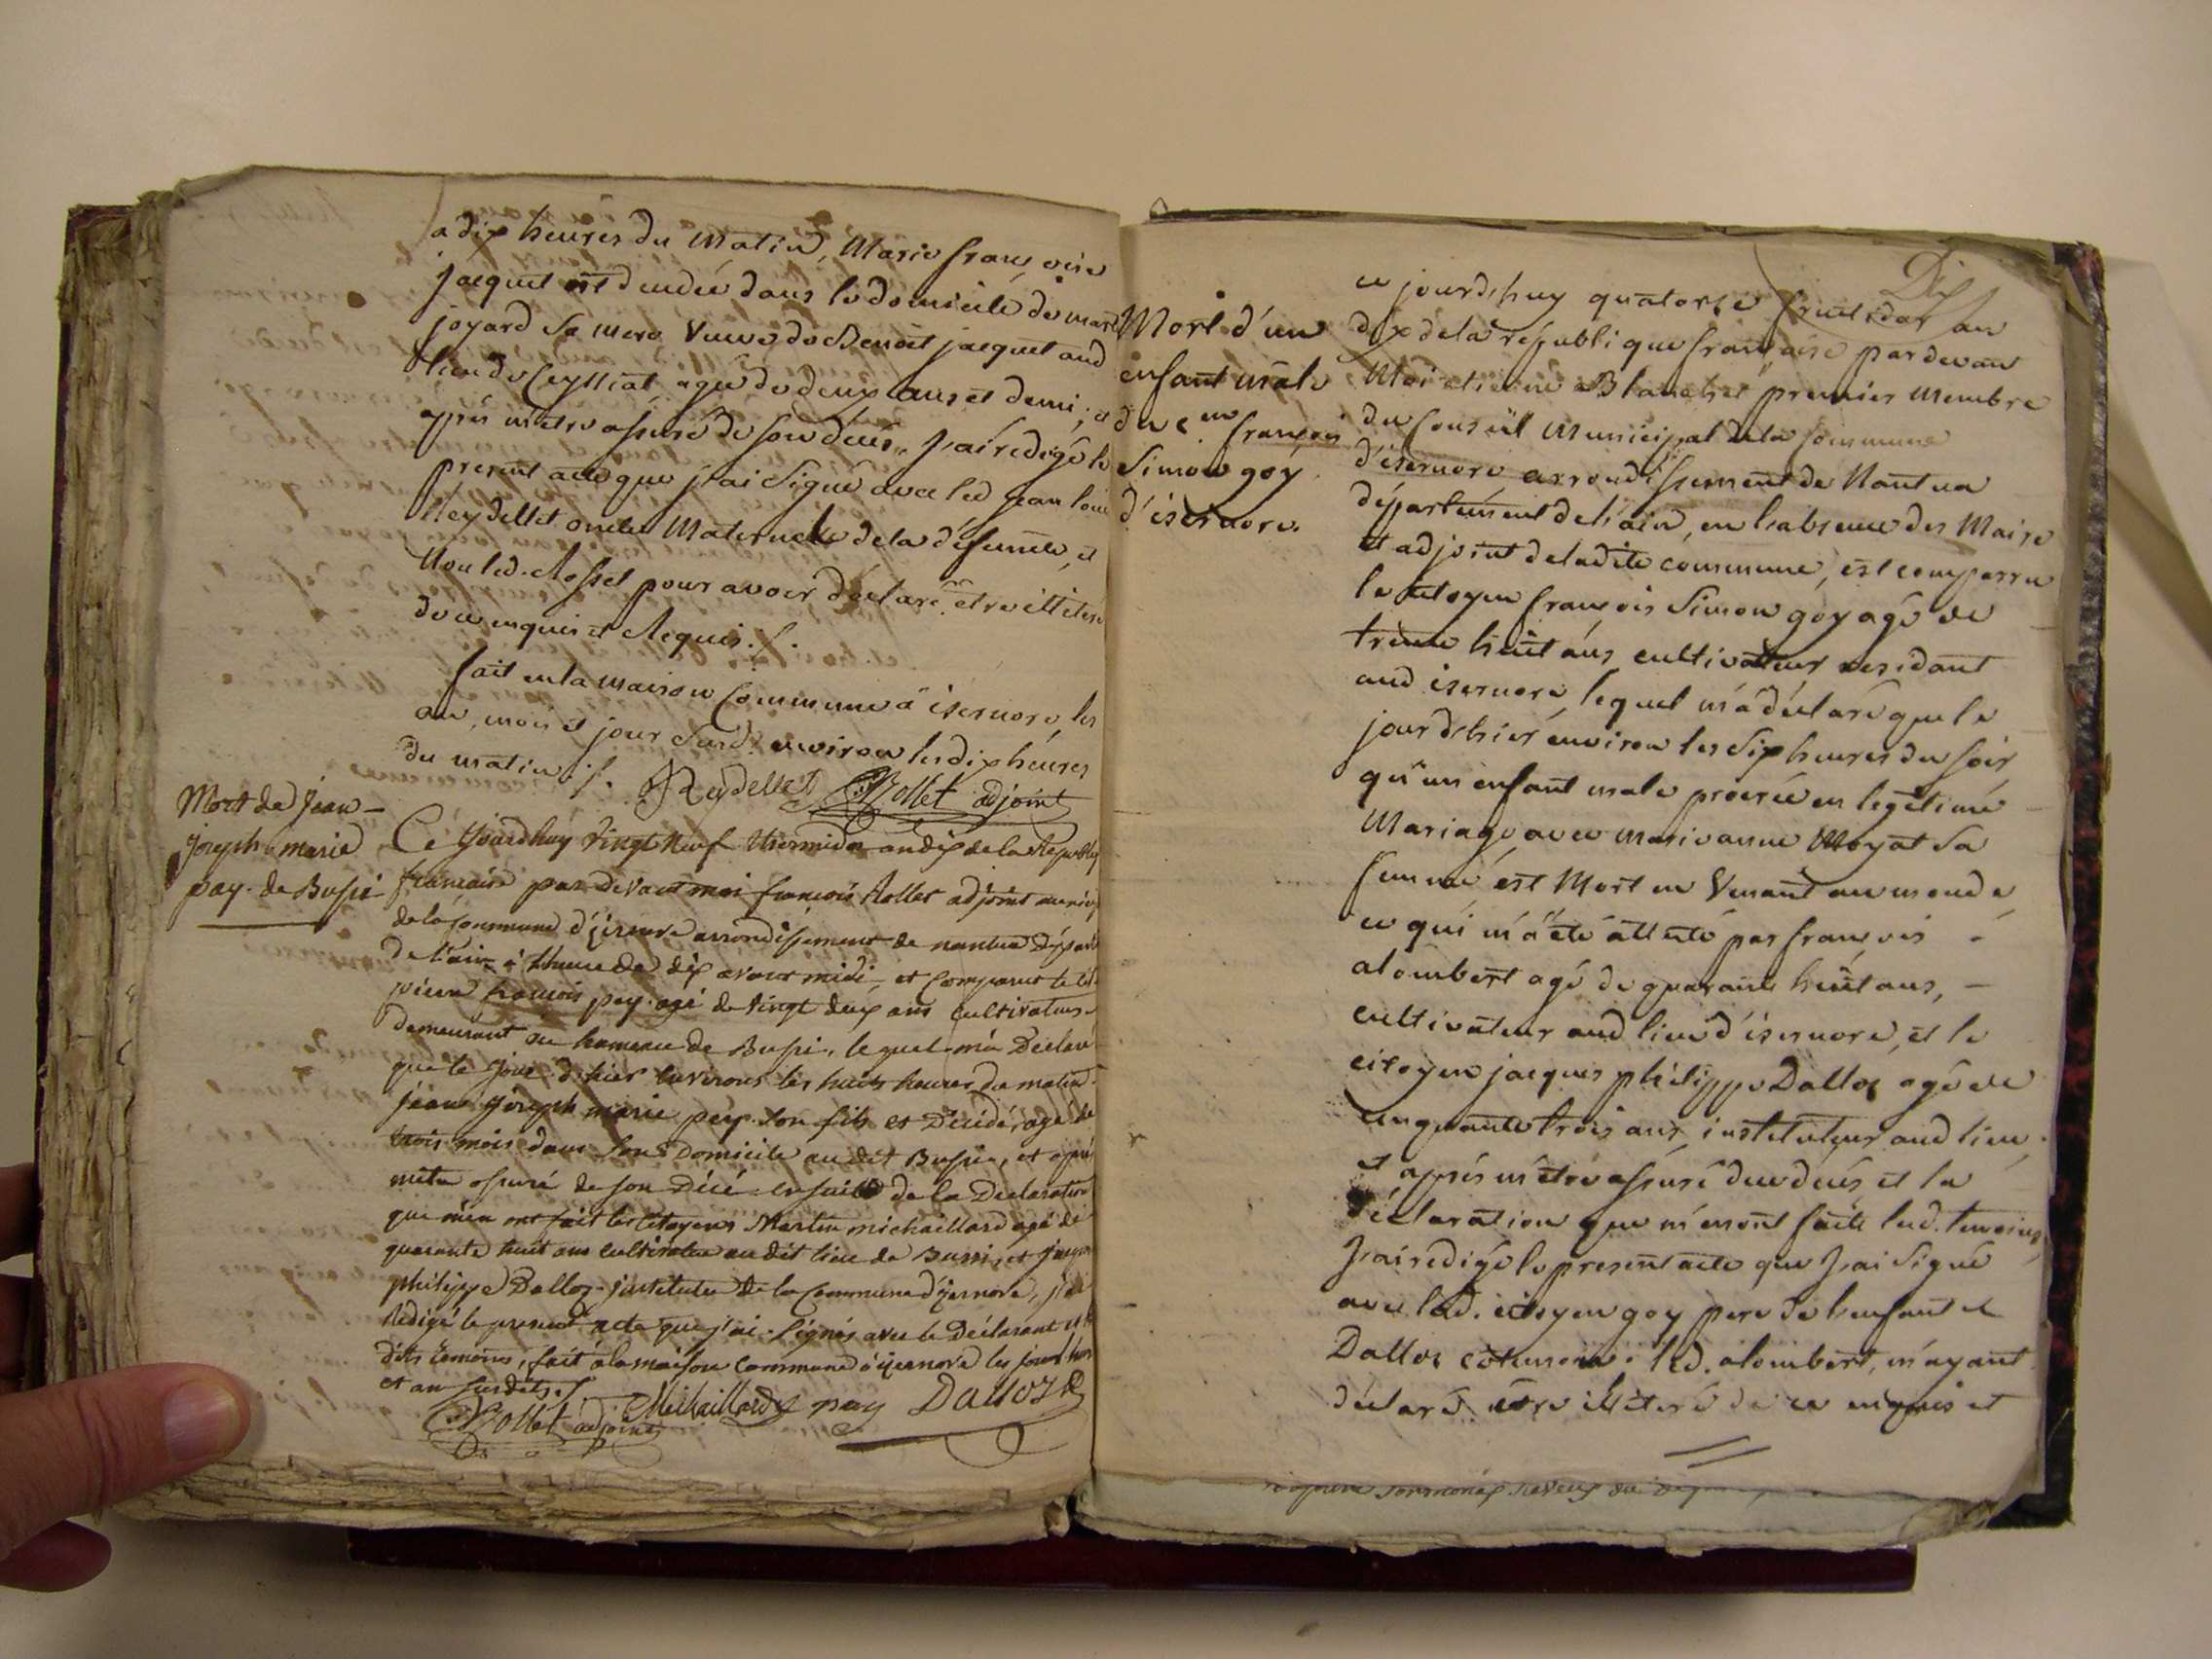 a dix heures du matin, Marie françoise
jacquet est deudée dans le domicile de mari
joyard sa mere veuve de Benoit jacquet aud
lieu de Ceyssiat agée de deux ans et demi; et
après m'etre assuré de son déces, j'ai redigé le
present acte que j'ai signé avec led jean loui
Reydellet oncle Maternelle de la défunte, et
Non led. Rosset pour avoir déclaré être illiteré
de ce enquis et Requis ./.
fait en la maison Commune à isernore, les
an, mois et jour susd. environ les dix heures
du matin ./. Reydellet Rollet adjoint
Mort de jean-
joseph-marie
pay. de Bussi
Ce jourdhuy vingt neuf thermidor an dix de la Republiq
francaise par devant moi francois Rollet adjoint munici
de la Commune d'izernore arrondissement de nantua départ
de l'ain à l'heure de dix avant midi, et comparut le cit
pierre francois pay. agé de vingt deux ans cultivateur
demeurant au hameau de Bussi, le quel m'a Déclaré
que le jour d'hier environs les huits heures du matin
jean joseph marie pay son fils et Décédé agé de
trois mois dans son domicile au dit Bussi, et après
m'etre assuré de son Décé ensuite de la Declaration
que m'en ont fait les citoyens Martin michaillard agé de
quarante huit ans cultivateur au dit lieu de Bussi, et jacques
philippe Dalloz institutu de la Commune d'izernore, j'ai
rédigé le present acte que j'ai signés avec le Déclarant et l
dits temoins, fait à la maison Commune d'izernore les jour, mois
et an susdits ./.
Rollet adjoint Michaillard pay Dalloz
Dix
Mort d'un
enfant mâle
du c.en françois
Simon goy
d'isernore.
ce jourd'huy quatorze fructidor an
dix de la république française pardevant
Moi etienne Blanchet premier membre
du Conseil Municipal de la Commune
d'isernore arrondissement de Nantua
département de l'ain, en l'absence des Maire
et adjoint de ladite commune, est comparru
le citoyen françois Simon goy agé de
trente huit ans cultivateur residant
aud isernore, lequel m'a déclaré que le
jour d'hiér environ les six heures du soir
qu'un enfant male procréé en legitime
Mariage avec marianne Moyat sa
femme est Mort en Venant au monde,
ce qui m'a été attesté par françois
alombert agé de quarante huit ans,
cultivateur aud lieu d'isernore, et le
citoyen jacques philippe Dalloz agé de
cinquante trois ans, instituteur aud lieu.
et après m'etre assuré du décés et la
déclaration que m'en ont faite lesd. temoins,
j'ai redigé le present acte que j'ai signé
avec led. citoyen goy pere de l'enfant et
Dalloz co temoin. led. alombert, m'ayant
déclaré être illiteré de ce enquis et